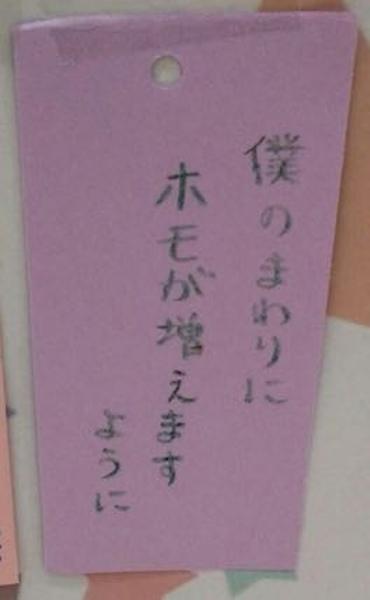 僕のまわりに
ホモが増えます
ように